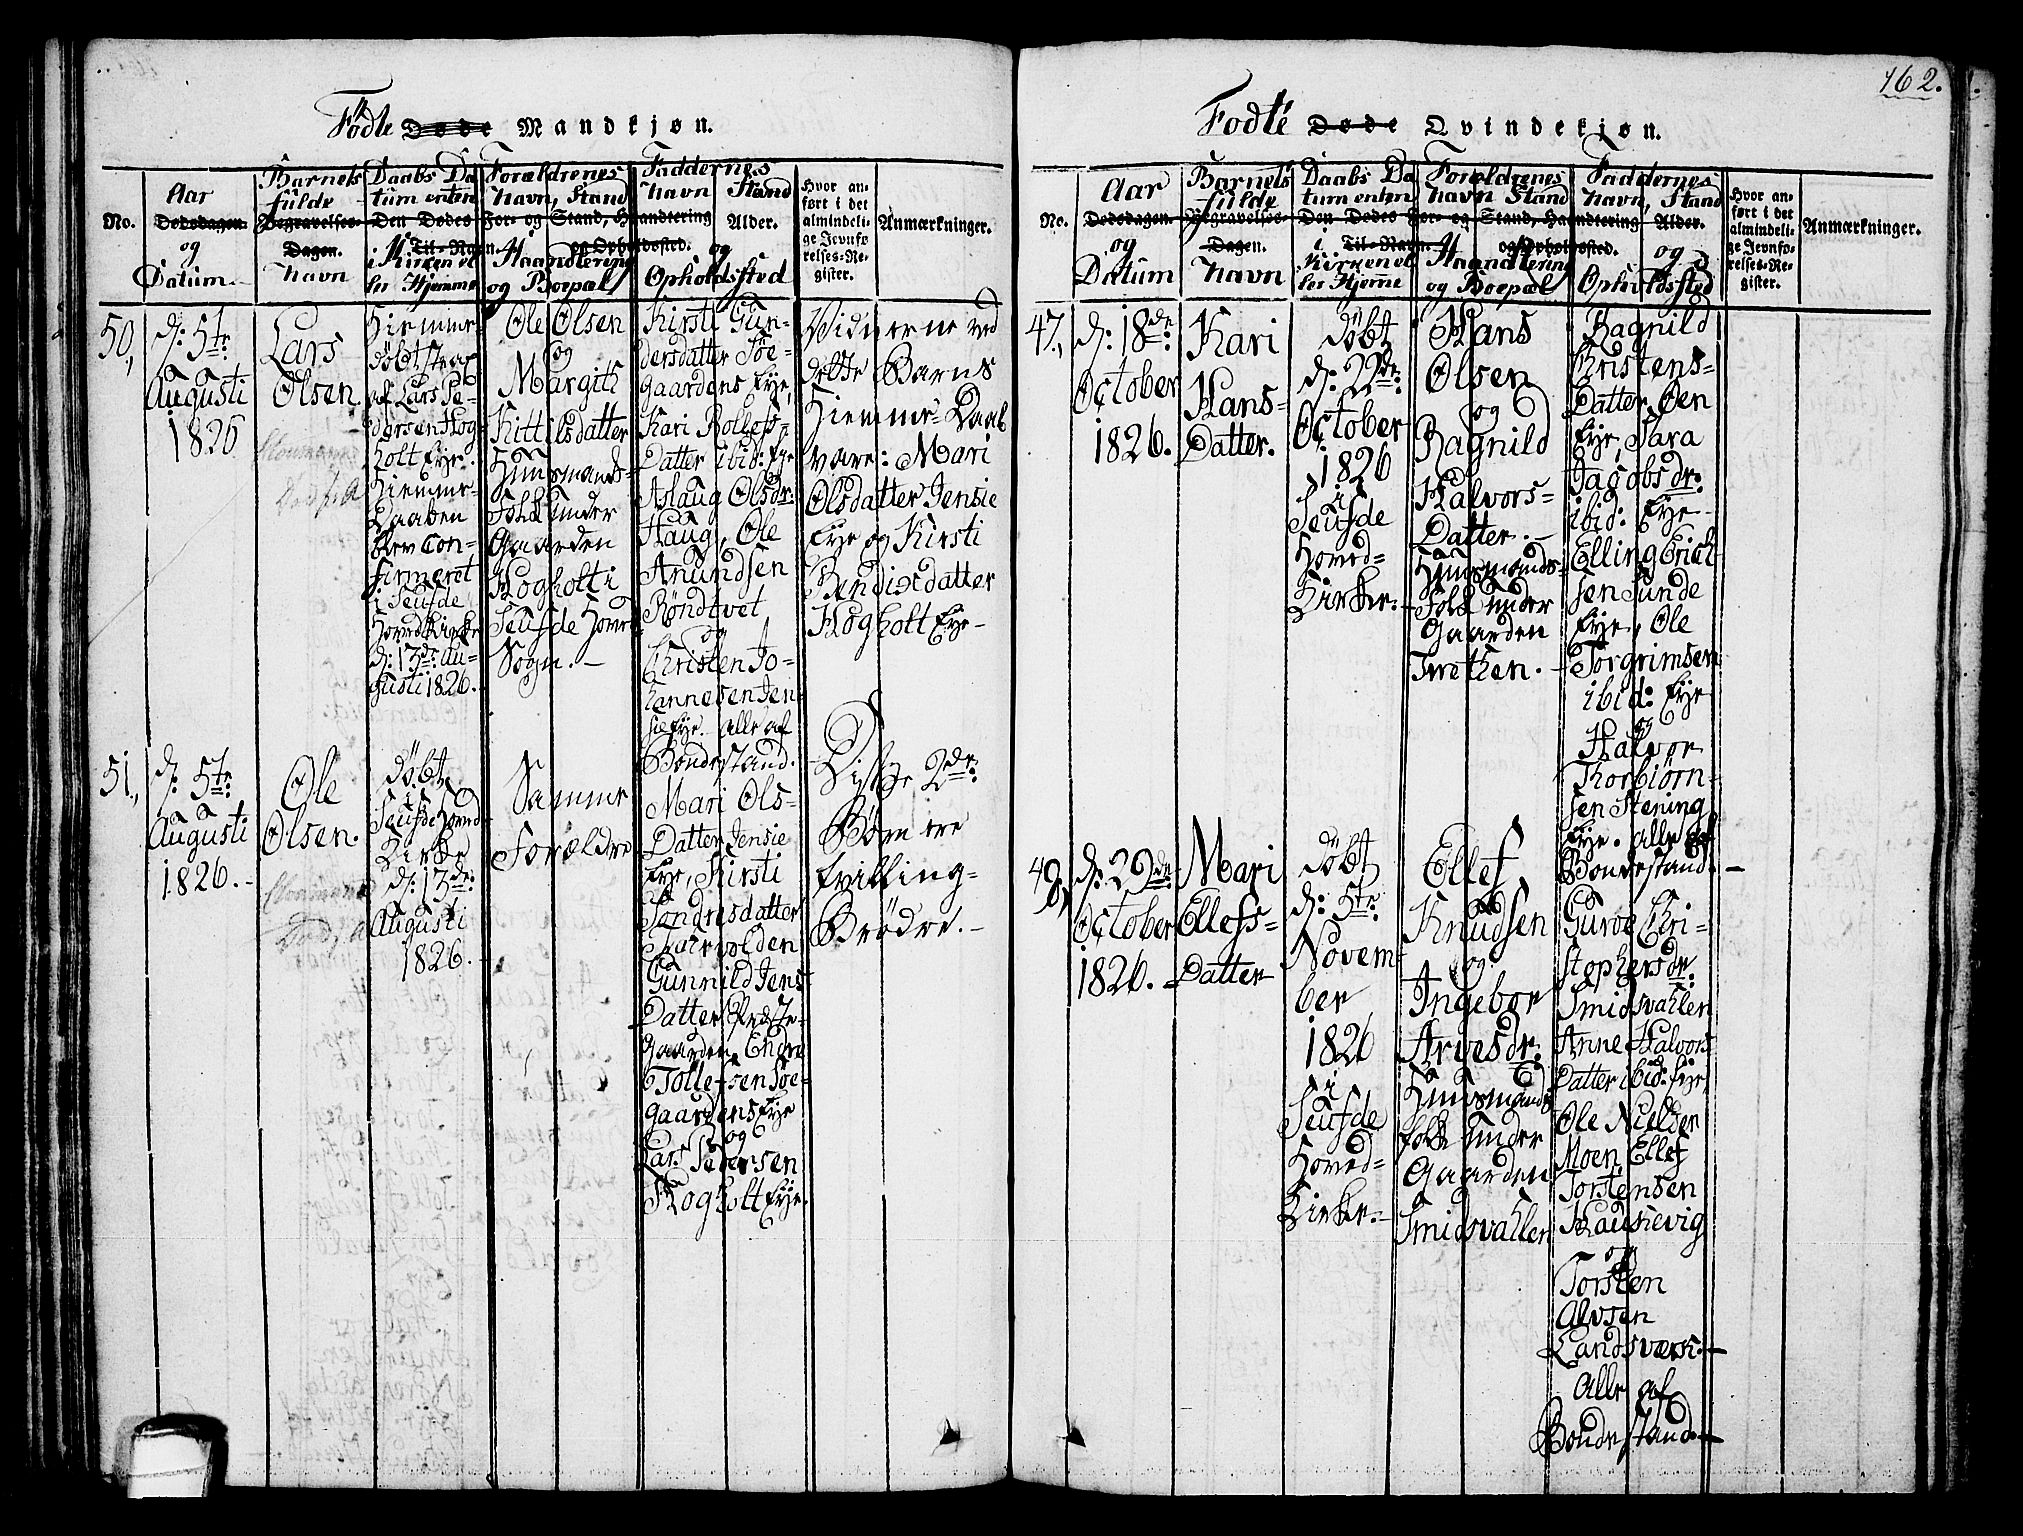 162.
Fødte Døde Mandkjøn.
No.
Aar
Dødsdagen
og
Datum
Barnets
fulde
Begravelses-
Dagen.
Navn
Daabs Da
tum enten
Den Dødes For- og
Til-Navn.
i Kirken el
ler Hjemme
Forældrenes
Navn, Stand
Stand, Haandtering
og Opholdssted.
Haandtering
og Boepæl
Faddernes
Navn Stand
Alder.
og
Opholdssted
Hvor an-
ført i det
almindeli-
ge Jevnfø
relses-Re-
gister.
Anmærkninger.
50,
d: 5te
Augusti
1826
Lars
Olsen
Hiemme-
døbt strax
af Lars Pe-
dersen Hog-
holt Eye.
Hiemme-
Daaben
blev Con-
firmeret
i Seufde
Hoved Kirke
d: 13de Au-
gusti 1826.
Ole Olsen
og
Margith
Kittilsdatter
Huusmands-
Folk under
Gaarden
Hogholt i
Seufde Hoved
Sogn. -
Kirsti Gun-
dersdatter Søe-
Gaardens Eye,
Kari Rollefs-
Datter ibid: Eye
Aslaug Olsdr:
Haug, Ole
Anundsen
Røndtvet
og
Christen Jo-
hannesen Jen-
sie Eye. Alle af
Bondestand.
Vidnerne ved
dette Barns
Hiemme-Daab
vare: Mari
Olsdatter Jensie
Eye og Kirsti
Bendixdatter
Hogholt Eye -
51,
d: 5te
Augusti
1826. -
Ole
Olsen.
døbt
i
Seufde Hoved-
Kirke
d: 13de
Augusti
1826. -
Samme
Forældre
Mari Ols-
Datter Jensie
Eye, Kirsti
Sondresdatter
Gunnild Jens
Datter Præste-
Gaarden, Endre
Tollefsen Søe-
gaardens Eye
og
Lars Pedersen
Hogholt Eye.
Disse 2de
Børn ere
tvilling-
Brødre. -
Fødte Døde Qvindekjøn.
No.
Aar
Dødsdagen
og
Datum
Barnets
fulde
Begravelses-
Dagen.
Navn
Daabs Da
tum enten
Den Dødes For- og
i
Til-Navn.
Kirken el
ler Hjeme
Forældrenes
Navn Stand
Stand, Haandtering
og Opholdssted.
Haandtering
og Boepæl
Faddernes
Navn, Stand
Alder.
og
Opholdssted
Hvor an-
ført i det
almindeli-
ge Jevnfø-
relses-Re-
gister.
Anmærkninger.
47,
d: 18de
October
1826.
Kari
Hans-
Datter.
døbt
d: 22de
October
1826
i
Seufde
Hoved-
Kirke. -
Hans
Olsen
og
Ragnild
Halvors-
Datter. -
Huusmands-
Folk under
Gaarden
Twethen. -
Ragnild
Kristens-
Datter Øen
Eye, Sara
Jagobsdr:
ibid: Eye
Elling Erich-
sen Sunde
Eye, Ole
Torgrimsen
ibid: Eye
og
Halvor
Thorbiørn-
sen Stening
Eye. Alle af
Bondestand. -
48,
d: 29de
October
1826. -
Mari
Ellefs-
Datter
døbt
d: 5te
Novem-
ber
1826
i
Seufde
Hoved-
Kirke. -
Ellef
Knudsen
og
Ingebor
Arvesdr:
Huusmands
folk under
Gaarden
Smidsvahlen
Guroe Chri-
stophersdr:
Smidsvahlen
Anne Halvors
Datter ibid: Eye
Ole Nielsen
Moen Ellef
Torstensen
Hausievig
og
Torsten
Alvsen
Landsværk. -
Alle af
Bondestand. -